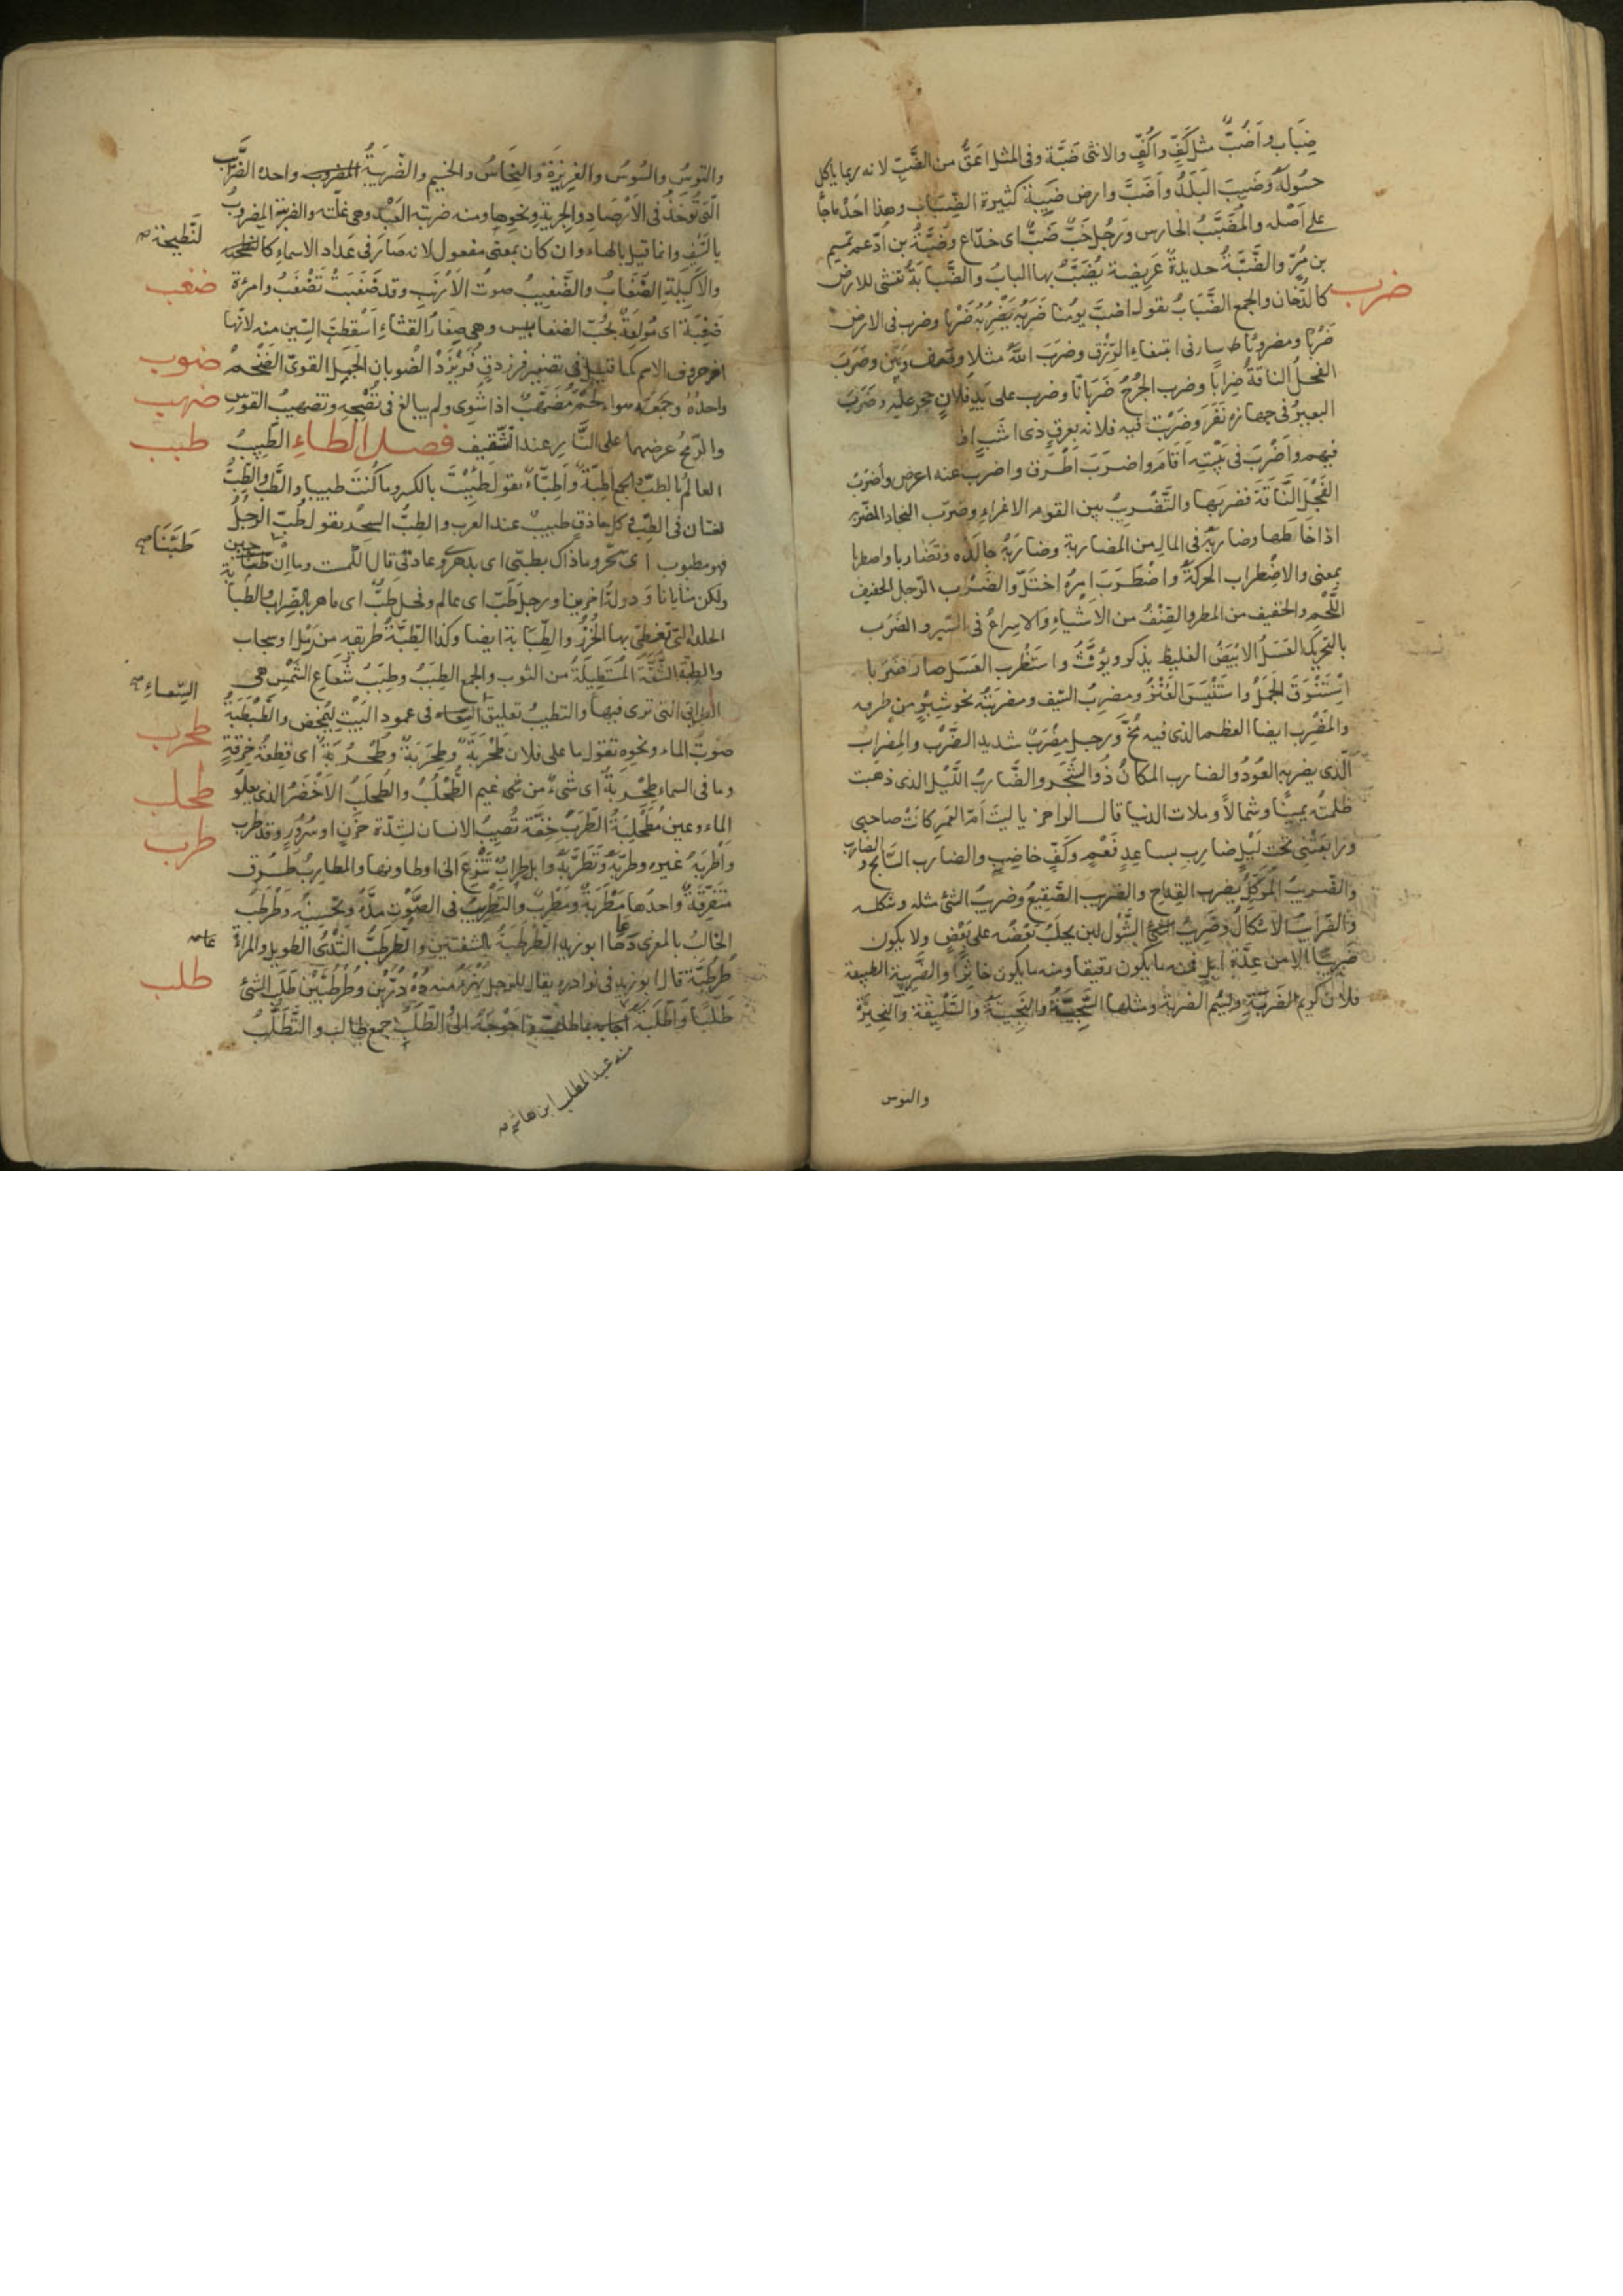 ضِبَاب واَضُبّ مثل كَفّ واَكُفّ والانثى ضَبّة وفى المثل اعَقُّ من الضَّبّ لانه ربما ياكل
حُسُولَهُ وضَبِبَ البَلَدُ واَضَبَّ وارض ضَبِبة كثيرة الضِّبَاب وهذا احَدُ ماجأ
على اَصْله والمُضَبِّبُ الحارس ورَجُل خَبٌّ ضَبٌّ اى خدّاع وضَبّةُ بن اُدّ عم تميم
بن مُرّ والضَّبَّةُ حديدةٌ عَرِيضة يُضَبَّبُ بها البابُ والضَّبَابَةُ تغشى للارض
ضرب
كالدُّخان والجمع الضَّبَابُ تقول اضبَّ يومُنا ضَرَبَهُ يَضْرِبُهُ ضَرْبًا وضرب فى الارض
ضَرْبًا ومضربًا سار فى ابتغاء الرّزق وضَرَبَ اللهُ مثلا وصف وبَيّن وضَرَبَ
الفحلُ الناقةَ ضِرابًا وضرب الجُرْحُ ضَرَبَانًا وضرب على يَدِ فلانٍ حجر عليه وضَرَبَ
البعيرُ فى جهازه نَفَرَ وضَرَبَتْ فيه فلانه بعرقٍ ذى اشَبٍ
فيهم واَضْرَبَ فى بَيْتِه اَقَامَ واضرَبَ اَطْرَق واضرب عنه اعرض واَضْرَبَ
الفَحْلَ النّاقَةَ فضربَها والتَّضْرِيبُ بين القوم الاغراء وضَرّب النجاد المضَرّبه
اذا خَاطَها وضاربَهُ فى المال من المضاربة وضارَبَهُ جالَدَه وتَضَاربا واضطربا
بمعنى والاضْطراب الحركةُ واضْطَرَبَ امرُهُ اختَلّ والضَرْب الرّجل الخفيف
اللَّحْم والخفيف من المطر والصِّنْفُ من الاَشياءِ والاسراعُ فى السَّير والضَرَب
بالتحريك العَسَلُ الابيَضُ الغليظ يذكر ويؤَنَّثُ واستَضْرب العَسَل صار ضَرَبا
اِسْتَنْوَقَ الجَمَلُ واستَتْيَسَ العَنْزُ ومضرِبُ السّيف ومضربَتُهُ نحو شِبْرٍ من طرفه
والمَضْرِب ايضا العظم الذى فيه مُخّ ورجل مِضْرَبٌ شديد الضَّرْب والمِضرابُ
الّذى يضرب به العُودُ والضارب المكانُ ذُو الشَّجَر والضَّاربُ اللَّيْل الذى ذهبت
ظلمتُه يمينًا وشمالاً وملات الدنيا قال الراجز يا ليتَ اُمّ العَمرِ كانَتْ صاحبى
ورابَعَتْنِى تحْتَ لَيْلٍ ضاربٍ بساعِدٍ فَعْمٍ وكَفٍّ خاضِبٍ والضارب السّابح والضارب
والضّرِيبُ المُوَكَّلُ بضرب القِدَاح والضريب الصَّقِيعُ وضريبُ الشئ مثله وشكله
والضّرايبُ الاشكالُ وضَرِيبُ الشَّوْل لبن يحلَبُ بَعْضُه على بَعْضٍ ولا يكون
ضَريبًا الا من عِدَّة اِبِلٍ فمنه ما يكون رقيقا ومنه ما يكون خاثِرًا والضَّرِيبة الطبيعة
فلان كريم الضَرِيبَةِ ولئيم الضريبة ومثلها السَّجِيَّةُ والنَّجِيتةُ والسَّلِيقَة والنَّحِيزَةُ
والتوس
والتوسُ والسُوسُ والغرِيزَةُ والنِّحَاسُ والخِيم والضّرِيبَةُ المضروب واحدة الضّرائب
الّتى تُوخَذُ فى الاَرْصَاد والجزيةِ ونحوِها ومنه ضريبة العَبْد وهى غلّته والضريبة المضروبُ
بالسَّيْف وانما قيل بالهاء وان كان بمعنى مفعول لانه صَارَ فى عَداد الاسماءِ كالنطيحة
لنَّطيحة صح
ضغب
والاَكِيلَةِ الضُّغَابُ والضَّغيبُ صوتُ الاَرْنَب وقد ضَغَبَتْ تَضْغَبُ وامرءة
ضَغِبَة اى مُولَعَةٌ بحُبّ الضغابيس وهى صِغَارُ القِثّاءِ اُسْقِطَتِ السّين منه لانّها
ضوب
اخر حروف الاسم كما قيل فى تصغير فرزدقٍ فُرَيْزَد الضُوبان الجَمَل القوىّ الضَّخْم
ضهب
واحدُهُ وجَمْعُهُ سواء لحْمٌ مُضَهَّبٌ اذا شُوِى ولم يبالغ فى نُضْجِه وتضهيبُ القوسِ
طبب
والرّمحُ عرضهما على النَّارِ عند التّثقيف فصل الطاء الطّبِيبُ
العالم بالطبّ والجمع اَطِبَّةٌ واَطِبّاءُ تقول طَبِبْتَ بالكسر وما كُنتَ طبيبا والطَّبّ والطُّبُّ
لغتان فى الطِّبِّ وكل حاذقٍ طبيبٌ عند العرب والطِبُّ السِحْر تقول طُبّ الرجلُ
طَبَّنَا صح
فهو مطبوب اى سُحِّر وما ذاك بطبّى اى بدهرى وعادتى قال الكميت وما اِنْ طِبُّنا جبن
ولكن منايانا ودولةُ اخرينا ورجل طَبّ اى عالم وفحل طَبٌّ اى ماهر بالضِّراب والطِّبابة
الجلدة التى تُغطّى بها الخُرَزُ والطِّبَابة ايضا وكذا الطِّبَّةُ طريقه من رَمْل او سحاب
والطِبّة الشُّقَّة المُسْتَطِيلَةُ من الثوب والجمع الطِبَبُ وطِبَبُ شُعَاعِ الشَّمْسِ هى
السِّعاءِ صح
الطرائق التى ترى فيها والتطبيب تعليق السقاء فى عمود البَيْت ليُمخَض والطَّبْطَبَةُ
طحرب
صَوتُ الماء ونحوه تقول ما على فلان طَحْرَبَة وطِحْرِبَةٌ وطُحْرُبَةٌ اى قِطعةُ خِرْقَةٍ
طحلب
وما فى السماء طِحْرِبةٌ اى شَىءٌ من غيم الطُّحْلُبُ والطُحلَبُ الاَخْضَرُ الذى يعلُو
طرب
الماء وعين مُطَحْلِبَةٌ الطّرَبُ خِفّة تُصِيبُ الانسان لشِدّة حزنٍ او سُرُورٍ وقد طَرِب
واَطْرَبَهُ غيره وطرّبَهُ وتَطَرَّبَهُ وابِل طِرابٌ تَنْزِعُ الى اوطانها والمطاربُ طُرُق
متفرّقةٌ واحدُها مَطْرَبَةٌ ومَطْرَبٌ والتَّطْرِيبُ فى الصَّوْتِ مدُّهُ وتحْسِينُه وطَرْطَب
الحالبُ بالمعزى دعاها ابو زيد الطَّرْطَبَةُ بالشفتين والطُّرْطُبُّ الثَّدْىُ الطويل والمراةُ
طلب
طُرْطُبَّة قال ابو زيد فى نوادره يقال للرجل يُهْزَءُ منه دُهْ دُرَّيْن وطُرْطُبَّيْن طَلَب الشئ
طَلَبًا واَطْلَبَهُ اجابه بما طلب واَحْوَجَهُ الى الطّلَب جمع طالب والتَّطَلُّبُ
منه عبد المطلب ابن هاشم صح